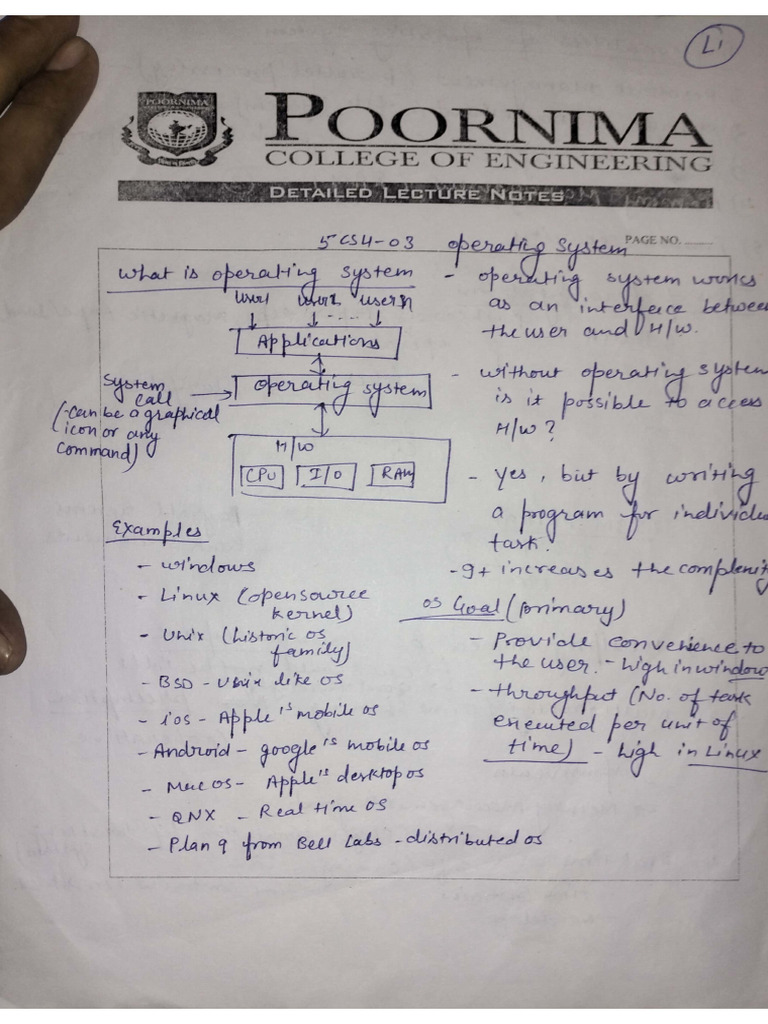 L1
POORNIMA
POORNIMA
COLLEGE OF ENGINEERING
DETAILED LECTURE NOTES
5CS4-03 Operating System
PAGE NO.
What is operating system
User1 User2 User n
Applications
Operating system
System call
(-can be a graphical
icon or any
command)
H/W
CPU I/O RAM
Examples
- windows
- Linux (opensource
kernel)
- Unix (historic os
family)
- BSD - Unix like os
- ios - Apple's mobile os
- Android - google's mobile os
- Mac os - Apple's desktop os
- QNX - Real time os
- Plan 9 from Bell Labs - distributed os
- operating system works
as an interface between
the user and H/W.
- without operating system
is it possible to access
H/W?
- Yes, but by writing
a program for individu
task.
- It increases the complexity
OS Goal (primary)
- Provide convenience to
the user. - high in window
- throughput (No. of task
executed per unit of
time) - high in Linux